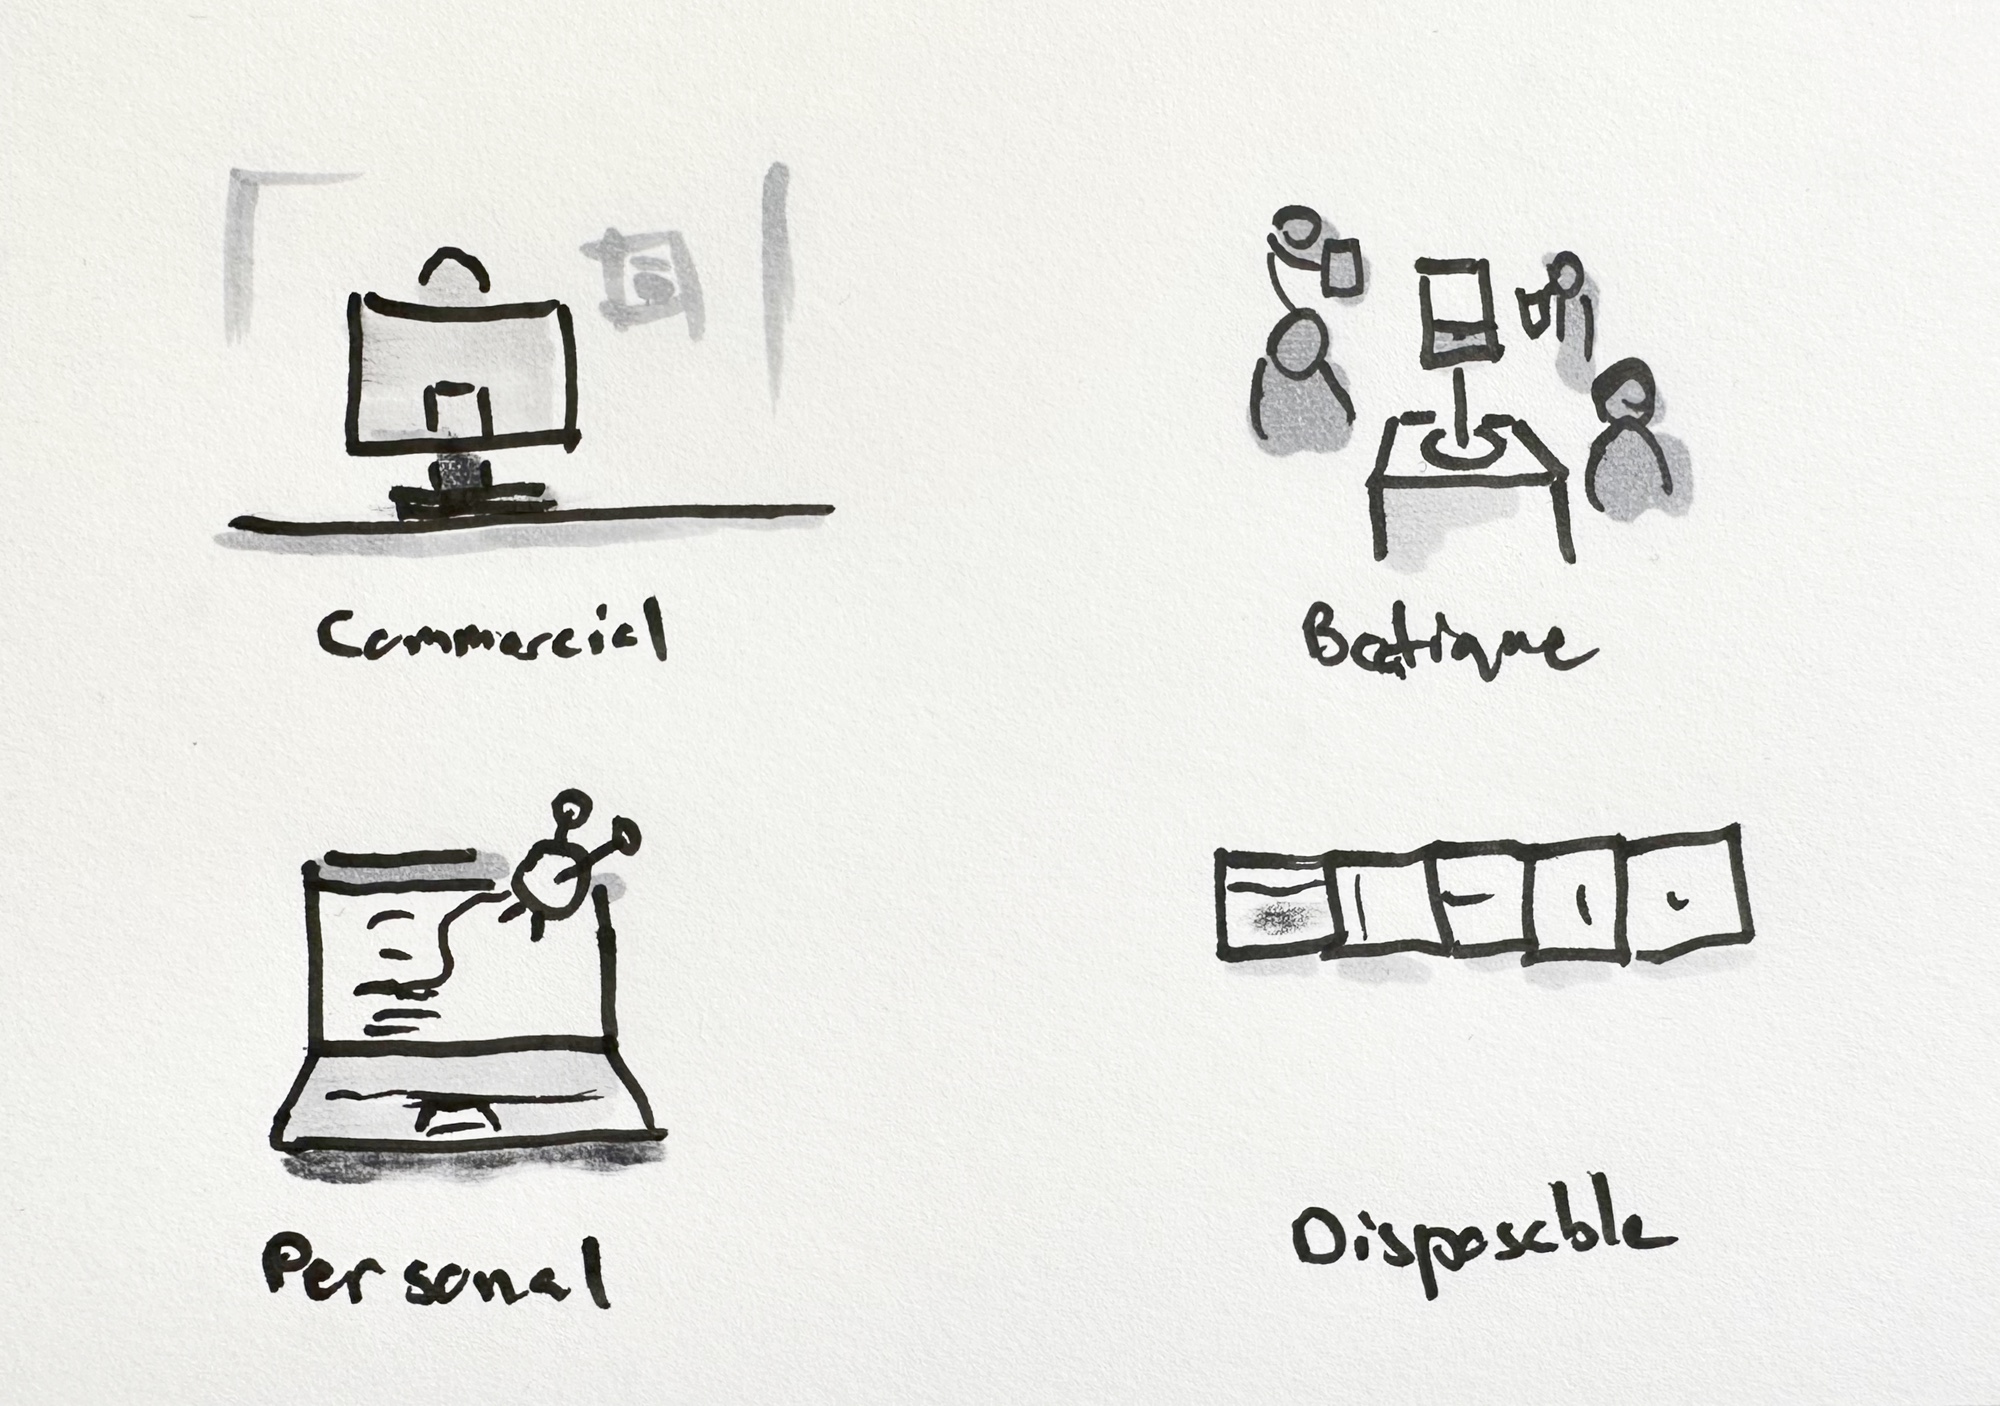 Commercial
Boutique
Personal
Disposable